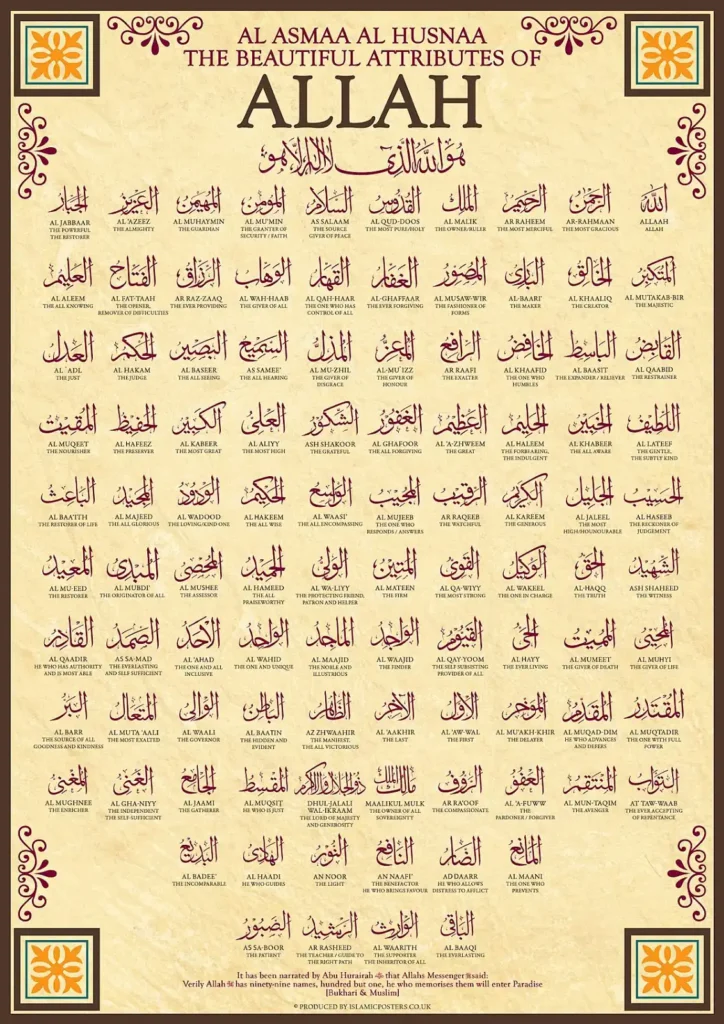 AL ASMAA AL HUSNAA
THE BEAUTIFUL ATTRIBUTES OF
ALLAH
هو الله الذي لا إله إلا هو
الله
ALLAAH
ALLAH
الرحمن
AR-RAHMAAN
THE MOST GRACIOUS
الرحيم
AR RAHEEM
THE MOST MERCIFUL
الملك
AL MALIK
THE OWNER/RULER
القدوس
AL QUD-DOOS
THE MOST PURE/HOLY
السلام
AS SALAAM
THE SOURCE
GIVER OF PEACE
المؤمن
AL MU'MIN
THE GRANTER OF
SECURITY / FAITH
المهيمن
AL MUHAYMIN
THE GUARDIAN
العزيز
AL 'AZEEZ
THE ALMIGHTY
الجبار
AL JABBAAR
THE POWERFUL
THE RESTORER
المتكبر
AL MUTAKAB-BIR
THE MAJESTIC
الخالق
AL KHAALIQ
THE CREATOR
البارئ
AL-BAARI'
THE MAKER
المصور
AL MUSAW-WIR
THE FASHIONER OF
FORMS
الغفار
AL-GHAFFAAR
THE EVER FORGIVING
القهار
AL QAH-HAAR
THE ONE WHO HAS
CONTROL OF ALL
الوهاب
AL WAH-HAAB
THE GIVER OF ALL
الرزاق
AR RAZ-ZAAQ
THE EVER PROVIDING
الفتاح
AL FAT-TAAH
THE OPENER,
REMOVER OF DIFFICULTIES
العليم
AL ALEEM
THE ALL KNOWING
القابض
AL QAABID
THE RESTRAINER
الباسط
AL BAASIT
THE EXPANDER / RELIEVER
الخافض
AL KHAAFID
THE ONE WHO
HUMBLES
الرافع
AR RAAFI
THE EXALTER
المعز
AL-MU`IZZ
THE GIVER OF
HONOUR
المذل
AL MU-ZHIL
THE GIVER OF
DISGRACE
السميع
AS SAMEE'
THE ALL HEARING
البصير
AL BASEER
THE ALL SEEING
الحكم
AL HAKAM
THE JUDGE
العدل
AL `ADL
THE JUST
اللطيف
AL LATEEF
THE GENTLE,
THE SUBTLY KIND
الخبير
AL KHABEER
THE ALL AWARE
الحليم
AL HALEEM
THE FORBEARING,
THE INDULGENT
العظيم
AL 'A-ZHWEEM
THE GREAT
الغفور
AL GHAFOOR
THE ALL FORGIVING
الشكور
ASH SHAKOOR
THE GRATEFUL
العلي
AL ALIYY
THE MOST HIGH
الكبير
AL KABEER
THE MOST GREAT
الحفيظ
AL HAFEEZ
THE PRESERVER
المقيت
AL MUQEET
THE NOURISHER
الحسيب
AL HASEEB
THE RECKONER OF
JUDGEMENT
الجليل
AL JALEEL
THE MOST
HIGH/HOUNOURABLE
الكريم
AL KAREEM
THE GENEROUS
الرقيب
AR RAQEEB
THE WATCHFUL
المجيب
AL MUJEEB
THE ONE WHO
RESPONDS / ANSWERS
الواسع
AL WAASI'
THE ALL ENCOMPASSING
الحكيم
AL HAKEEM
THE ALL WISE
الودود
AL WADOOD
THE LOVING/KIND ONE
المجيد
AL MAJEED
THE ALL GLORIOUS
الباعث
AL BAA'ITH
THE RESTORER OF LIFE
الشهيد
ASH SHAHEED
THE WITNESS
الحق
AL-HAQQ
THE TRUTH
الوكيل
AL WAKEEL
THE ONE IN CHARGE
القوي
AL QA-WIYY
THE MOST STRONG
المتين
AL MATEEN
THE FIRM
الولي
AL WA-LIYY
THE PROTECTING FRIEND,
PATRON AND HELPER
الحميد
AL HAMEED
THE ALL
PRAISEWORTHY
المحصي
AL MUSHEE
THE ASSESSOR
المبدئ
AL MUBDI'
THE ORIGINATOR OF ALL
المعيد
AL MU-EED
THE RESTORER
المحيي
AL MUHYI
THE GIVER OF LIFE
المميت
AL MUMEET
THE GIVER OF DEATH
الحي
AL HAYY
THE EVER LIVING
القيوم
AL QAY-YOOM
THE SELF SUBSISTING
PROVIDER OF ALL
الواجد
AL WAAJID
THE FINDER
الماجد
AL MAAJID
THE NOBLE AND
ILLUSTRIOUS
الواحد
AL WAHID
THE ONE AND UNIQUE
الأحد
AL 'AHAD
THE ONE AND ALL
INCLUSIVE
الصمد
AS SA-MAD
THE EVERLASTING
AND SELF SUFFICIENT
القادر
AL QAADIR
HE WHO HAS AUTHORITY
AND IS MOST ABLE
المقتدر
AL MUQTADIR
THE ONE WITH FULL
POWER
المقدم
AL MUQAD-DIM
HE WHO ADVANCES
AND DEFERS
المؤخر
AL MU'AKH-KHIR
THE DELAYER
الأول
AL 'AW-WAL
THE FIRST
الآخر
AL 'AAKHIR
THE LAST
الظاهر
AZ ZHWAAHIR
THE MANIFEST,
THE ALL VICTORIOUS
الباطن
AL BAATIN
THE HIDDEN AND
EVIDENT
الوالي
AL WAALI
THE GOVERNOR
المتعال
AL MUTA 'AALI
THE MOST EXALTED
البر
AL BARR
THE SOURCE OF ALL
GOODNESS AND KINDNESS
التواب
AT TAW-WAAB
THE EVER ACCEPTING
OF REPENTANCE
المنتقم
AL MUN-TAQIM
THE AVENGER
العفو
AL 'A-FUWW
THE
PARDONER / FORGIVER
الرؤوف
AR RA'OOF
THE COMPASSIONATE
مالك الملك
MAALIKUL MULK
THE OWNER OF ALL
SOVEREIGNTY
ذو الجلال والإكرام
DHUL-JALALI
WAL-IKRAAM
THE LORD OF MAJESTY
AND GENEROSITY
المقسط
AL MUQSIT
HE WHO IS JUST
الجامع
AL JAAMI
THE GATHERER
الغني
AL GHA-NIYY
THE INDEPENDENT
THE SELF-SUFFICIENT
المغني
AL MUGHNEE
THE ENRICHER
المانع
AL MAANI
THE ONE WHO
PREVENTS
الضار
AD DAARR
HE WHO ALLOWS
DISTRESS TO AFFLICT
النافع
AN NAAFI'
THE BENEFACTOR
HE WHO BRINGE FAVOUR
النور
AN NOOR
THE LIGHT
الهادي
AL HAADI
HE WHO GUIDES
البديع
AL BADEE'
THE INCOMPARABLE
الباقي
AL BAAQI
THE EVERLASTING
الوارث
AL WAARITH
THE SUPPORTER
THE INHERITOR OF ALL
الرشيد
AR RASHEED
THE TEACHER / GUIDE TO
THE RIGHT PATH
الصبور
AS SA-BOOR
THE PATIENT
It has been narrated by Abu Hurairah that Allahs Messenger ﷺ said:
Verily Allah has ninety-nine names, hundred but one, he who memorises them will enter Paradise
[Bukhari & Muslim]
© PRODUCED BY ISLAMICPOSTERS.CO.UK